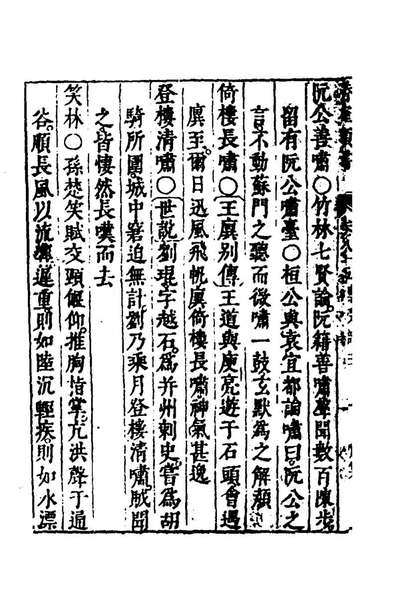 阮公善嘯○竹林七賢論阮籍善嘯聲聞數百陳步
留有阮公嘯臺○桓公與袁宜都論嘯曰阮公之
言不動蘇門之聽而微嘯一鼓玄默為之解顏
倚樓長嘯○王廙別傳王道與庾亮遊于石頭會遇
廙至爾日迅風飛帆廙倚樓長嘯神氣甚逸
登樓清嘯○世說劉琨字越石為并州刺史嘗為胡
騎所圍城中窘迫無計劉乃乘月登樓清嘯賊聞
之皆悽然長嘆而去
笑林○孫楚笑賦交頸偃仰推胸指掌亢洪聲于通
谷順長風以流遲重則如陸沉輕疾則如水漂